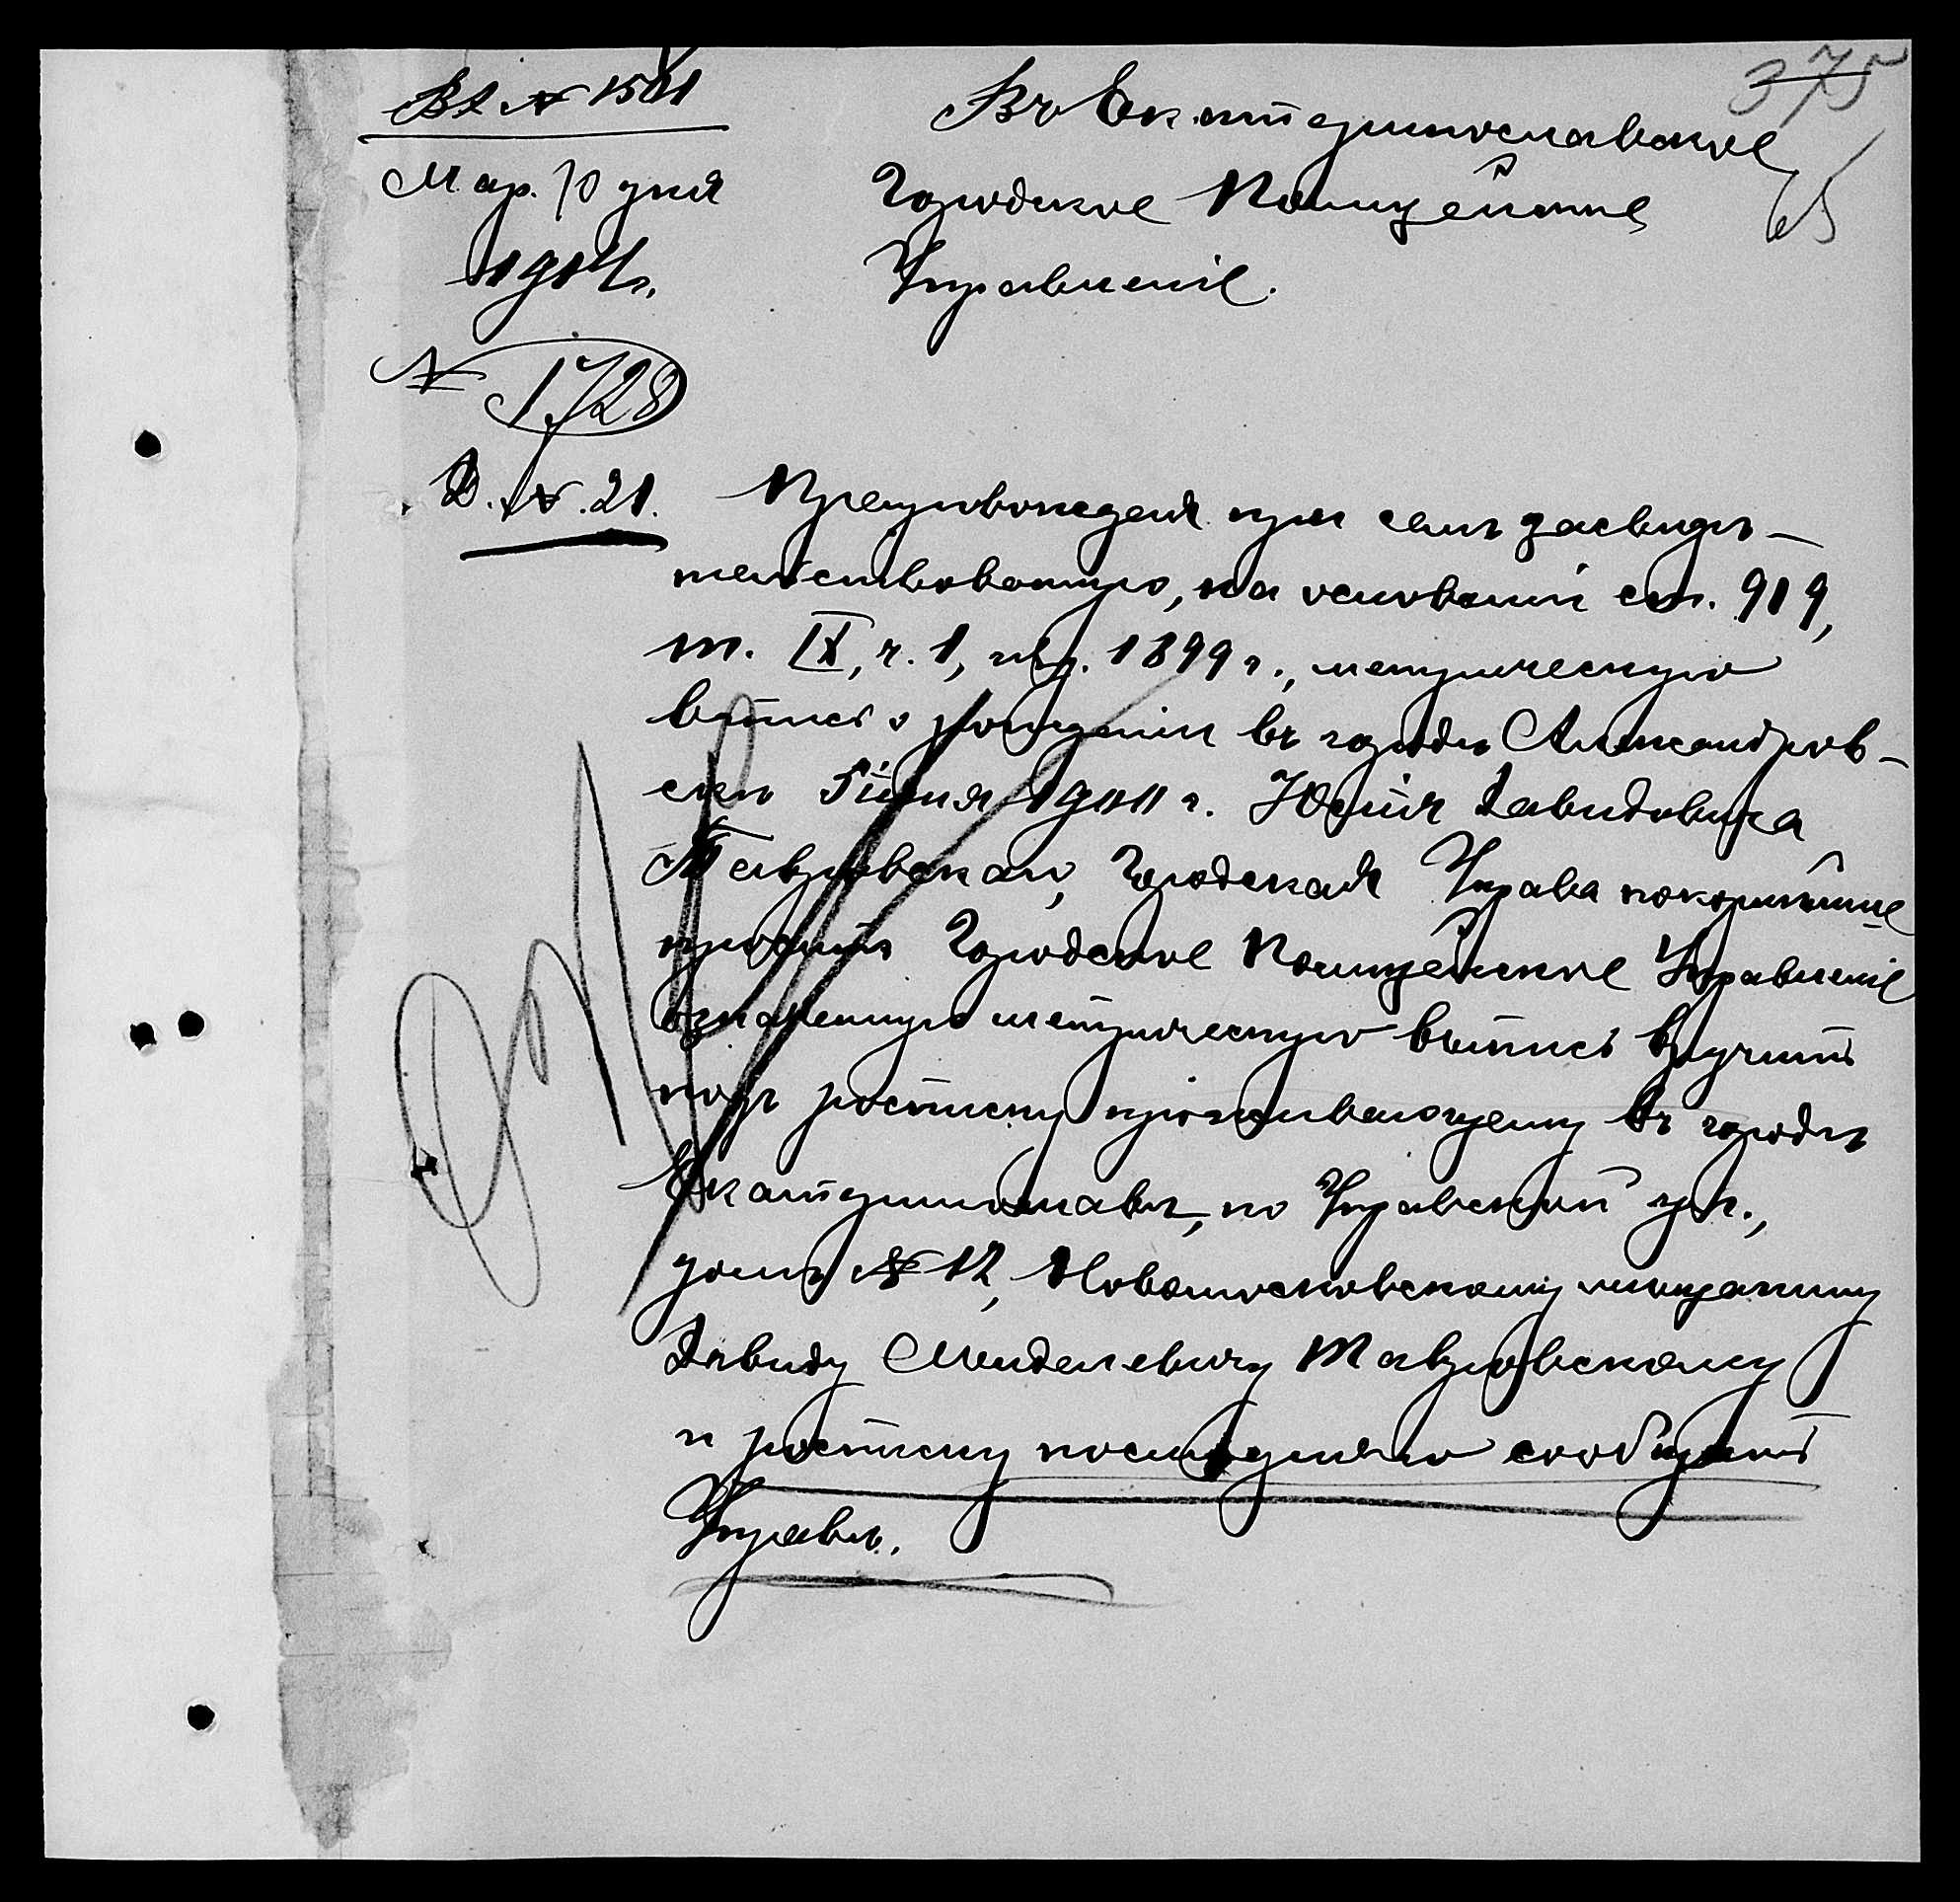 375
65
Вх № 1501
Мар. 10 дня
1914 г.
№ 1728
Д. № 21.
Въ Екатеринославское
Городское Полицейское
Управленіе.
Препровождая при семъ засвидѣ-
тельствованную, на основаніи ст. 919,
т. IX, ч. 1, изд. 1899 г., метрическую
выпись о рожденіи въ городѣ Александров-
скѣ 5 іюня 1900 г. Юлія Давидовича
Тавровскаго, Городская Управа покорнѣйше
проситъ Городское Полицейское Управленіе
означенную метрическую выпись вручить
подъ росписку проживающему въ городѣ
Екатеринославѣ, по Управской ул.,
домъ № 12, Новомосковскому мѣщанину
Давиду Менделевичу Тавровскому
и росписку послѣдняго сообщить
Управѣ.